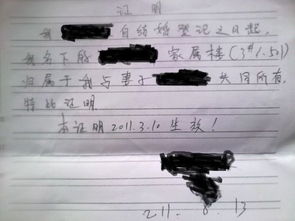 证 明
我 自结婚登记之日起,
我名下的 家属楼(3#1.501)
归属于我与妻子 共同所有.
特此证明
本证明2011.3.10生效!
211. 8. 13